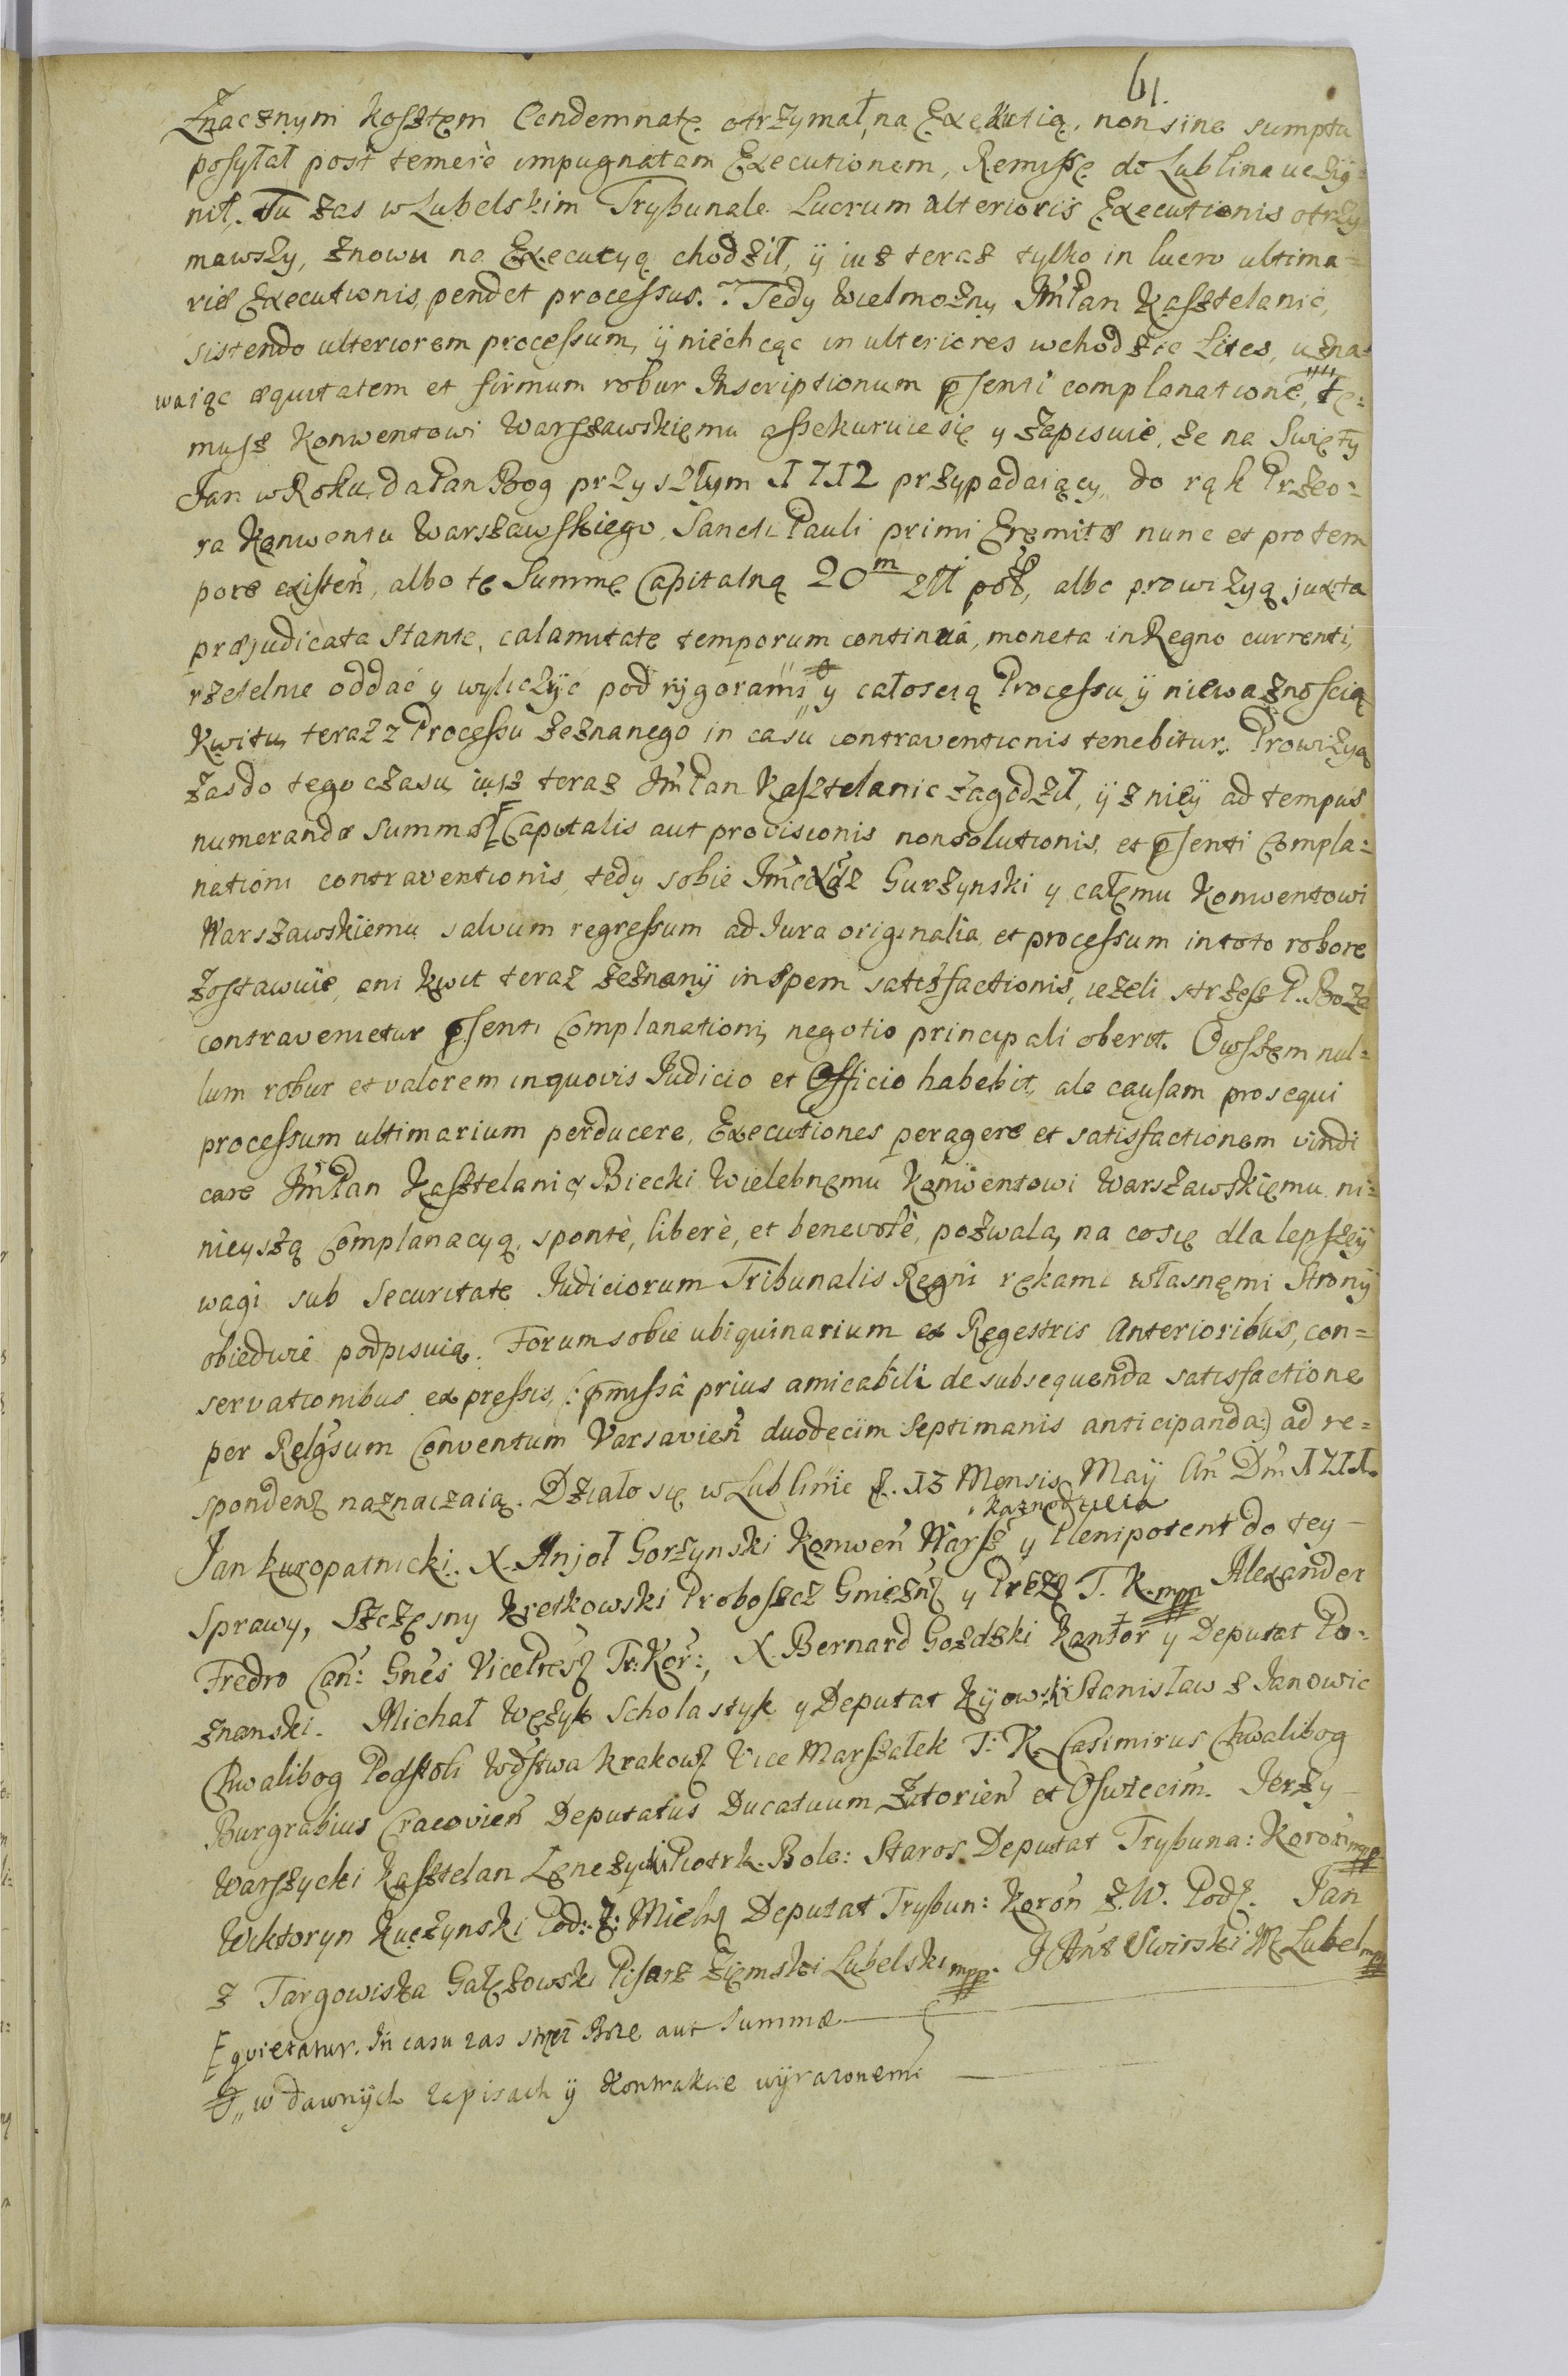 61.
Znacznym kosztem Condemnatę otrzymał, na Exekutią, non sine sumptu
posyłał post temerè impugnatam Executionem, Remissę do Lublina uczÿ=
nił. Tu zas w Lubelskim Trybunale Lucrum Ulterioris Executionis otrzy
mawszy, znowu na Executyą chodził, ÿ iuz teraz tylko in lucro ultima=
riæ Executionis, pendet processus. Tedy Wielmożny JmPan Kasztelanic,
sistendo ulteriorem processum, ÿ niechcąc in ulteriores wchodzic Lites, uzna=
waiąc æquitatem et firmum robur Inscriptionum pſenti complanatione, te=
musz Konwentowi Warszawskiemu assekuruie się y zapisuie, że na Swięty
Jan w Roku, da Pan Bog przyszłym 1712 przypadaiący, do rąk Przeo=
ra Konwentu Warszawskiego, Sancti Pauli primi Eremitæ nunc et pro tem
pore existeñ, albo tę Summę Capitalną 20m zł pol, albo prowizyą juxta
præjudicata stante, calamitate temporum continuâ, moneta in Regno currenti,
rzetelnie oddać y wyliczÿc pod rÿgorami y całoscią Processu ÿ niewaznoscią
Kwitu, teraz z Processu zeznanego in casu contraventionis tenebitur. Prowizyą
zas do tego czasu iusz teraz JmPan Kasztelanic zagodził, ÿ z niey ad tempus
numerandæ Summæ [Capitalis aut provisionis nonsolutionis, et pſenti Compla=
nationi contraventionis, tedy sobie JmcXdz Gurzynski y całemu Konwentowi
Warszawskiemu salvum regressum ad Jura originalia, et processum in toto robore
zostawuie, ani kwit teraz zeznanÿ in spem satisfactionis, iezeli strzesz P. Boze
contravenietur pſenti Complanationi, negotio principali oberit. Owszem nul=
lum robur et valorem in quovis Judicio et Officio habebit, ale causam prosequi
processum ultimarium perducere, Executiones peragere et satisfactionem vindi
care JmPan Kasztelanic Biecki Wielebnemu Konwentowi Warszawskiemu ni=
nieyszą Complanacyą, spontè, liberè, et benevolè, pozwala, na co się dla lepszeÿ
wagi sub Securitate Judiciorum Tribunalis Regni rękami własnemi Stronÿ
obiedwie podpisuią. Forum sobie ubiquinarium ex Regestris Anterioribus, con=
servationibus expressis, (: pmissâ prius amicabili de subsequenda satisfactione
per Relgsum Conventum Varsavieñ duodecim Septimanis anticipanda:) ad re=
spondenz naznaczaią. Działo się w Lublinie d. 13 Mensis Maÿ An Dm 1711.
kaznodzieia
Jan Kuropatnicki. X. Anjoł Gorzynski Konweñ Warsz y Plenipotent do tey
Sprawy, Szczęsny Kretkowski Proboszcz Gnieżn y Prez T. K. mpp Alexander
Fredro Can: Gnes VicePres Tr: Kor:, X. Bernard Gozdzki Kantor y Deputat Po=
znanski. Michał Węzyk Scholastyk y Deputat Kyowski Stanisław z Janowic
Chwalibog Podstoli Wdstwa Krakow Vice Marszałek T: K. Casimirus Chwalibog
Burgrabius Cracovieñ Deputatus Ducatuum Zatorieñ et Oswiecim. Jerzy
Warszycki Kasztelan Lęnczycki Piotrk. Bole: Staros. Deputat Trybuna: Koron mpp
Wiktoryn Kuczynski Pod: Z: Miel Deputat Trybun: Koron Z. W. Podl. Jan
z Targowiska Gałęzowski Pisarz Ziemski Lubelski mpp. J Ant Swirski Lubel mpp
[quietatur. In casu zas strzez Boze aut Summæ
w dawnÿch zapisach ÿ Kontrakcie wÿrazonemi